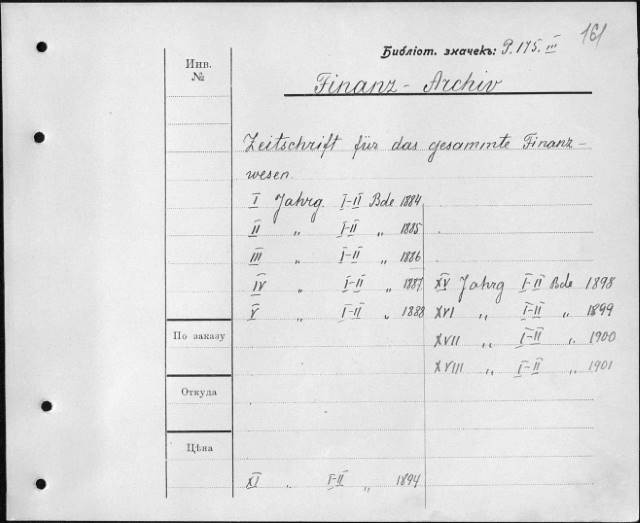 161
Библіот. значекъ: P. 175. III
Инв.
№
Finanz - Archiv
Zeitschrift für das gesammte Finanz-
wesen.
I Jahrg. I-II Bde 1884
II „ I-II „ 1885
III „ I-II „ 1886
IV „ I-II „ 1887
V „ I-II „ 1888
XV Jahrg I-II Bde 1898
XVI „ I-II „ 1899
XVII „ I-II „ 1900
XVIII „ I-II „ 1901
По заказу
Откуда
Цѣна
XI „ I-II „ 1894